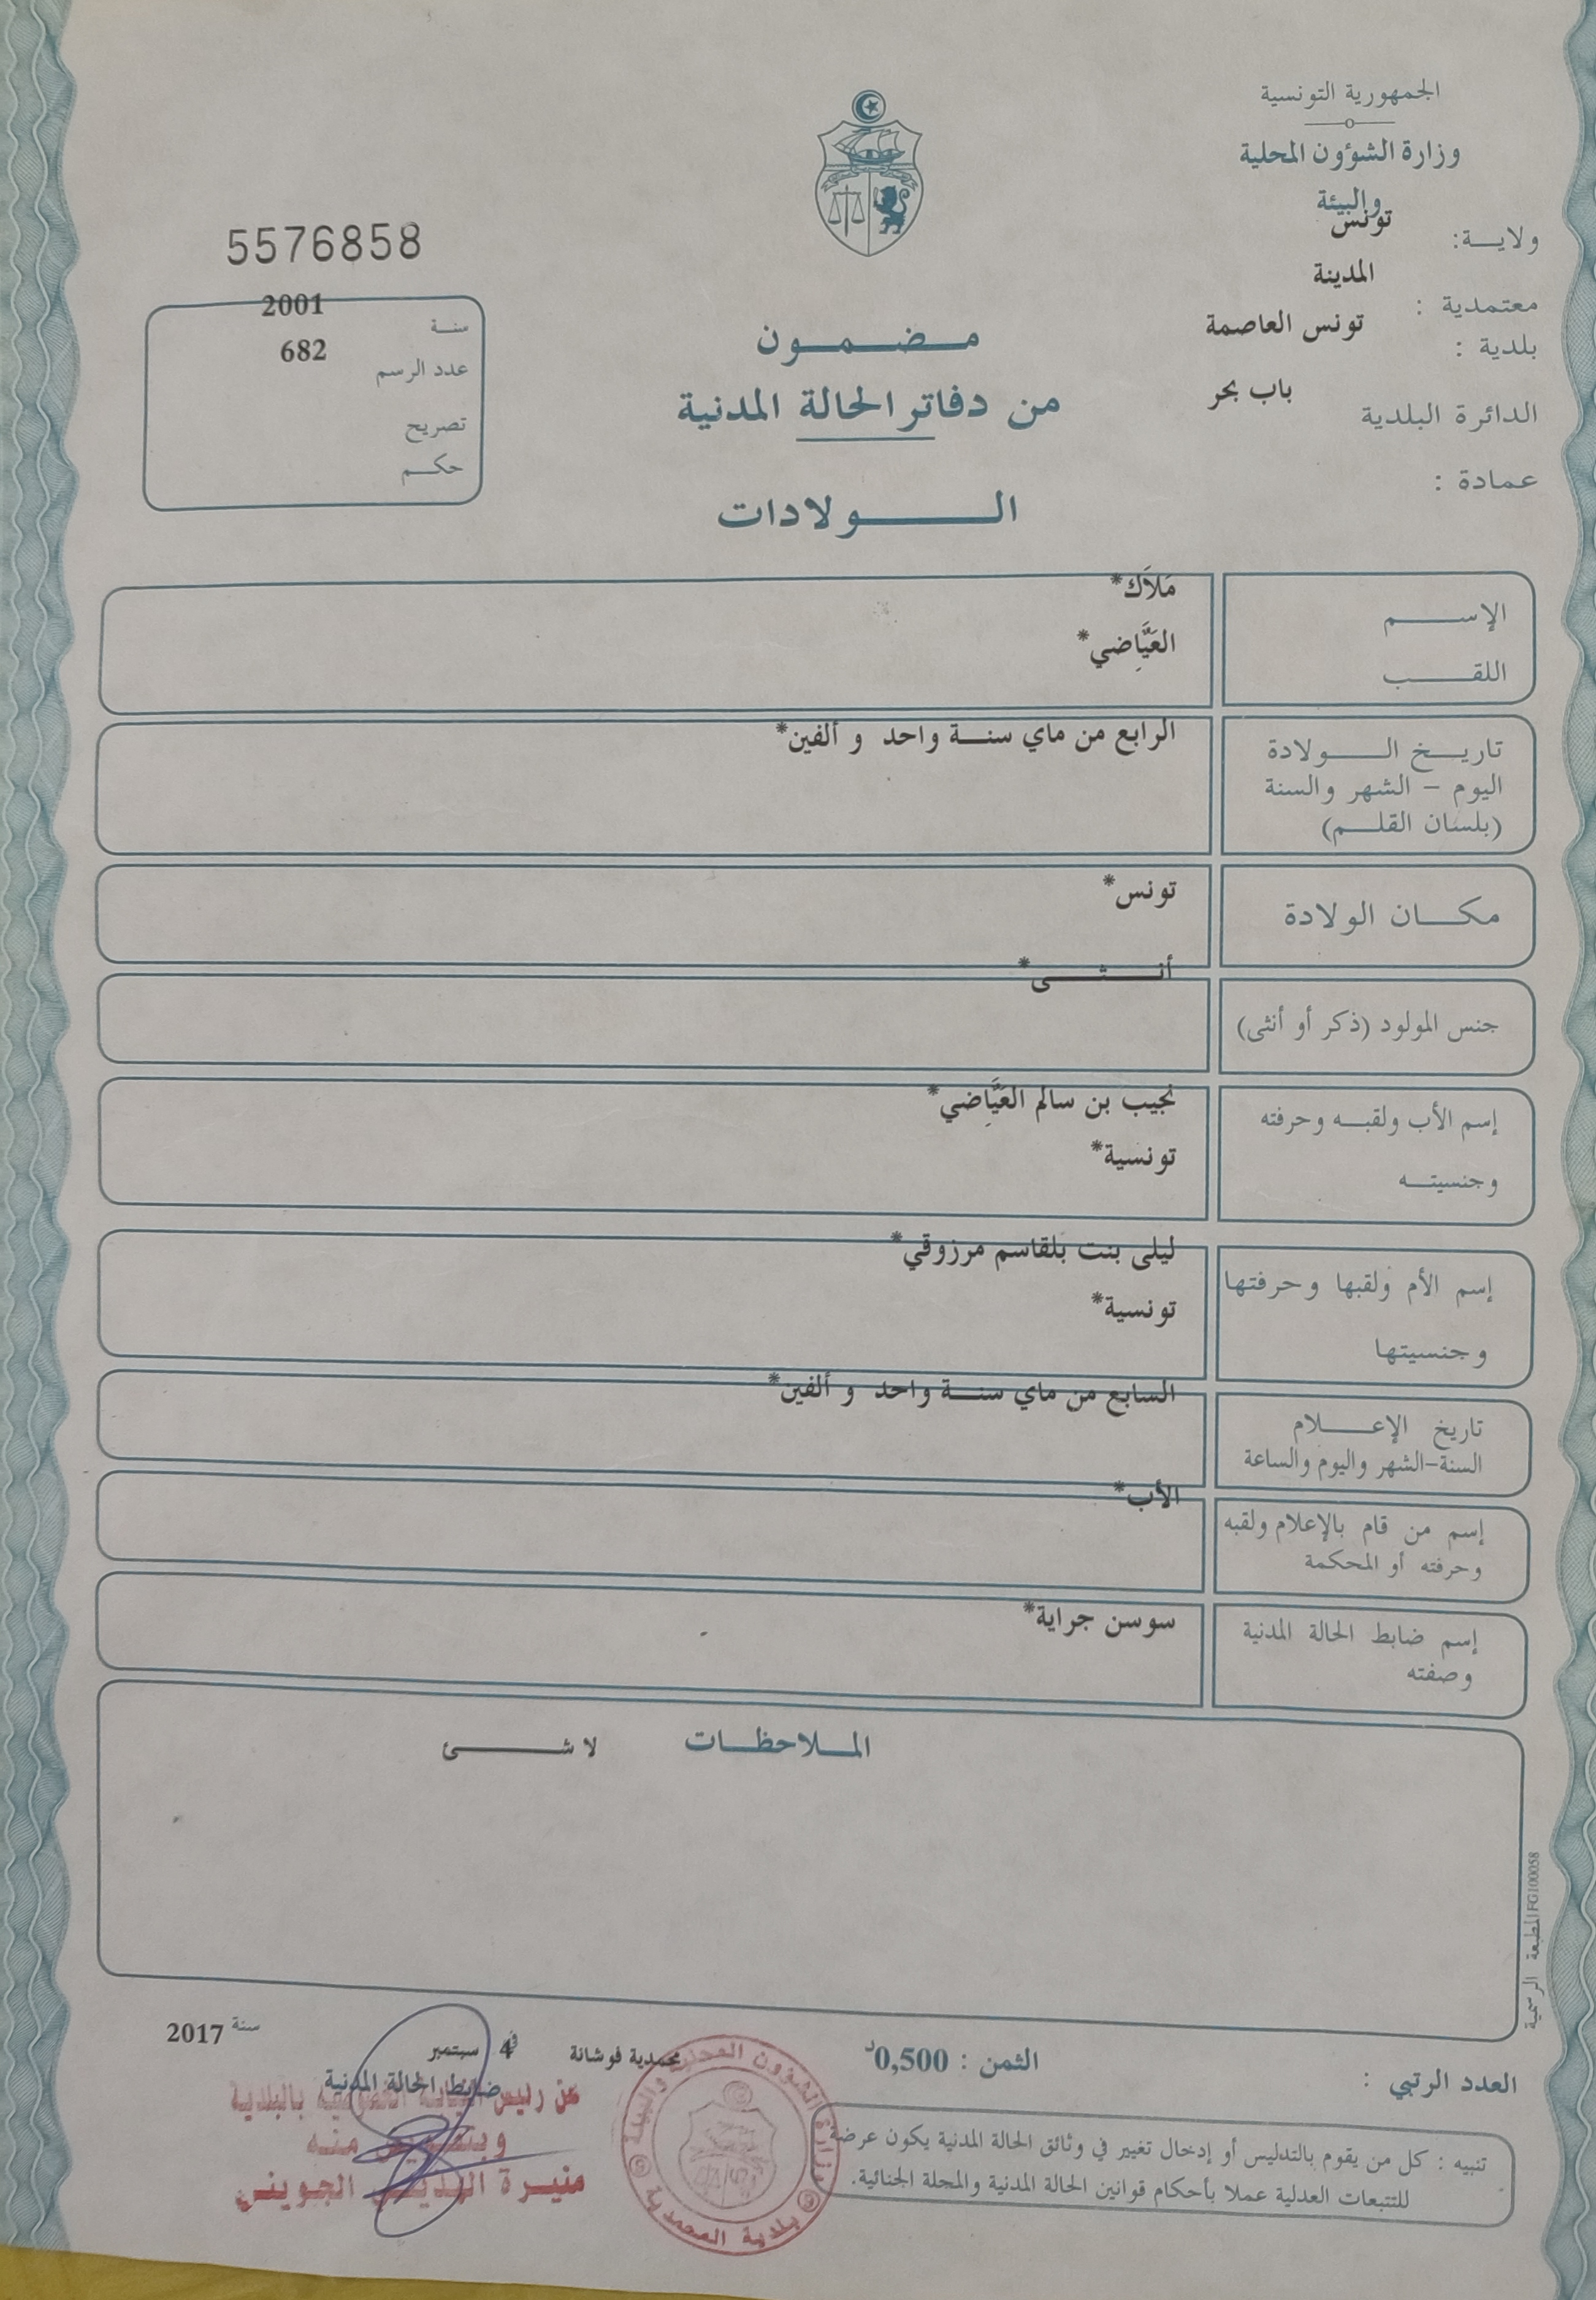 الجمهورية التونسية
وزارة الشؤون المحلية
والبيئة
ولاية: تونس
معتمدية : المدينة
بلدية : تونس العاصمة
الدائرة البلدية باب بحر
عمادة :
5576858
سنة 2001
عدد الرسم 682
تصريح
حكم
مضمون
من دفاتر الحالة المدنية
الولادات
الإسم مَلاَك*
اللقب العَيَّاضِي*
تاريخ الولادة الرابع من ماي سنة واحد و ألفين*
اليوم – الشهر والسنة
(بلسان القلم)
مكان الولادة تونس*
جنس المولود (ذكر أو أنثى) أنثى*
إسم الأب ولقبه وحرفته نجيب بن سالم العَيَّاضِي*
وجنسيته تونسية*
إسم الأم ولقبها وحرفتها ليلى بنت بلقاسم مرزوقي*
وجنسيتها تونسية*
تاريخ الإعلام السابع من ماي سنة واحد و ألفين*
السنة-الشهر واليوم والساعة
إسم من قام بالإعلام ولقبه الأب*
وحرفته أو المحكمة
إسم ضابط الحالة المدنية سوسن جراية*
وصفته
الملاحظات لا شئ
المطبعة الرسمية FG100058
العدد الرتبي :
الثمن : 0,500د
محمدية فوشانة في 4 سبتمبر سنة 2017
ضابط الحالة المدنية
عن رئيس النيابة الخصوصية بالبلدية
وبتفويض منه
منيرة الجويني
وزارة الشؤون المحلية والبيئة
بلدية المحمدية
تنبيه : كل من يقوم بالتدليس أو إدخال تغيير في وثائق الحالة المدنية يكون عرضة
للتتبعات العدلية عملا بأحكام قوانين الحالة المدنية والمجلة الجنائية.